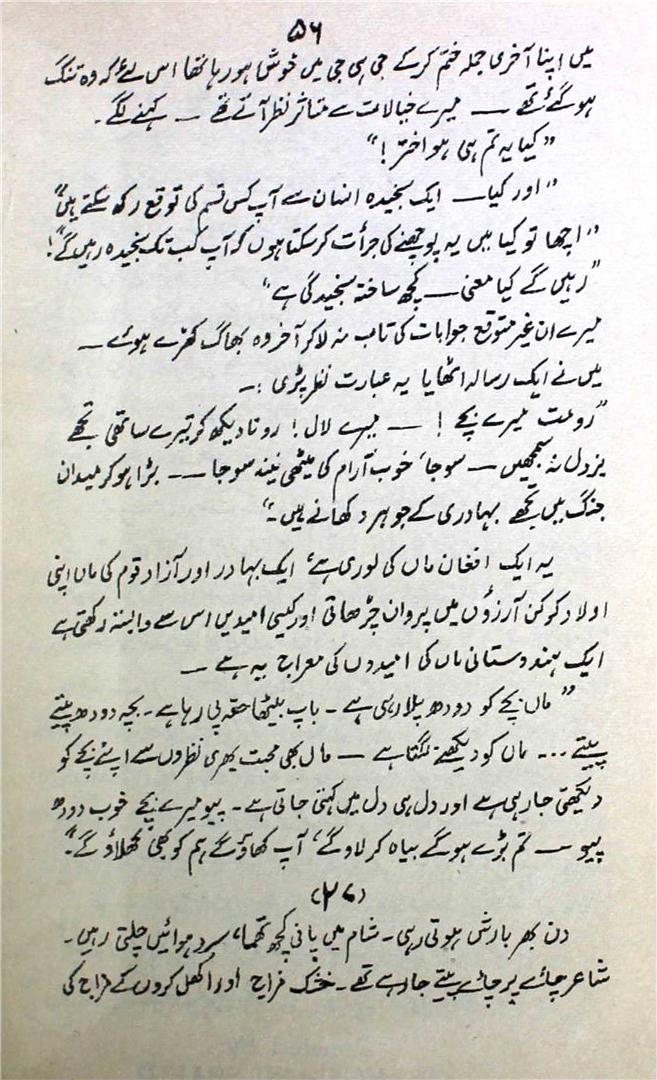 ۵۶
میں اپنا آخری جملہ ختم کرکے جی ہی جی میں خوش ہو رہا تھا اس لئے کہ وہ تنگ
ہو گئے تھے — میرے خیالات سے متاثر نظر آتے تھے — کہنے لگے۔
"کیا یہ تم ہی ہو اختر!"
"اور کیا — ایک سنجیدہ انسان سے آپ کس قسم کی توقع رکھ سکتے ہیں"
"اچھا تو کیا میں یہ پوچھنے کی جرأت کر سکتا ہوں کہ آپ کب تک سنجیدہ رہیں گے"!
"رہیں گے کیا معنی — کچھ ساختہ سنجیدگی ہے"
میرے ان غیر متوقع جوابات کی تاب نہ لا کر آخر وہ بھاگ کھڑے ہوئے —
میں نے ایک رسالہ اٹھایا یہ عبارت نظر پڑی :—
"رو مت میرے بچے! — میرے لال! روتا دیکھ کر تیرے ساتھی تجھے
بزدل نہ سمجھیں — سوجا، خوب آرام کا میٹھی نیند سوجا — بڑا ہو کر میدان
جنگ میں تجھے بہادری کے جوہر دکھانے ہیں۔"
یہ ایک افغان ماں کی لوری ہے، ایک بہادر اور آزاد قوم کی ماں اپنی
اولاد کو کن آرزوؤں میں پروان چڑھاتی اور کیسی امیدیں اس سے وابستہ رکھتی ہے
ایک ہندوستانی ماں کی امیدوں کی معراج یہ ہے —
"ماں بچے کو دودھ پلا رہی ہے۔ باپ بیٹھا حقہ پی رہا ہے۔ بچہ دودھ پیتے
پیتے ... ماں کو دیکھنے لگتا ہے — ماں بھی محبت بھری نظروں سے اپنے بچے کو
دیکھتی جا رہی ہے اور دل ہی دل میں کہتی جاتی ہے۔ پیو میرے بچے خوب دودھ
پیو — تم بڑے ہو گے بیاہ کر لاؤ گے، آپ کھاؤ گے ہم کو بھی کھلاؤ گے۔"
(۲۷)
دن بھر بارش ہوتی رہی۔ شام میں پانی کچھ تھما، سرد ہوائیں چلتی رہیں۔
شاعر چائے پر چائے پیتے جا رہے تھے۔ خشک مزاج اور اکھل کروں کے مزاج کی